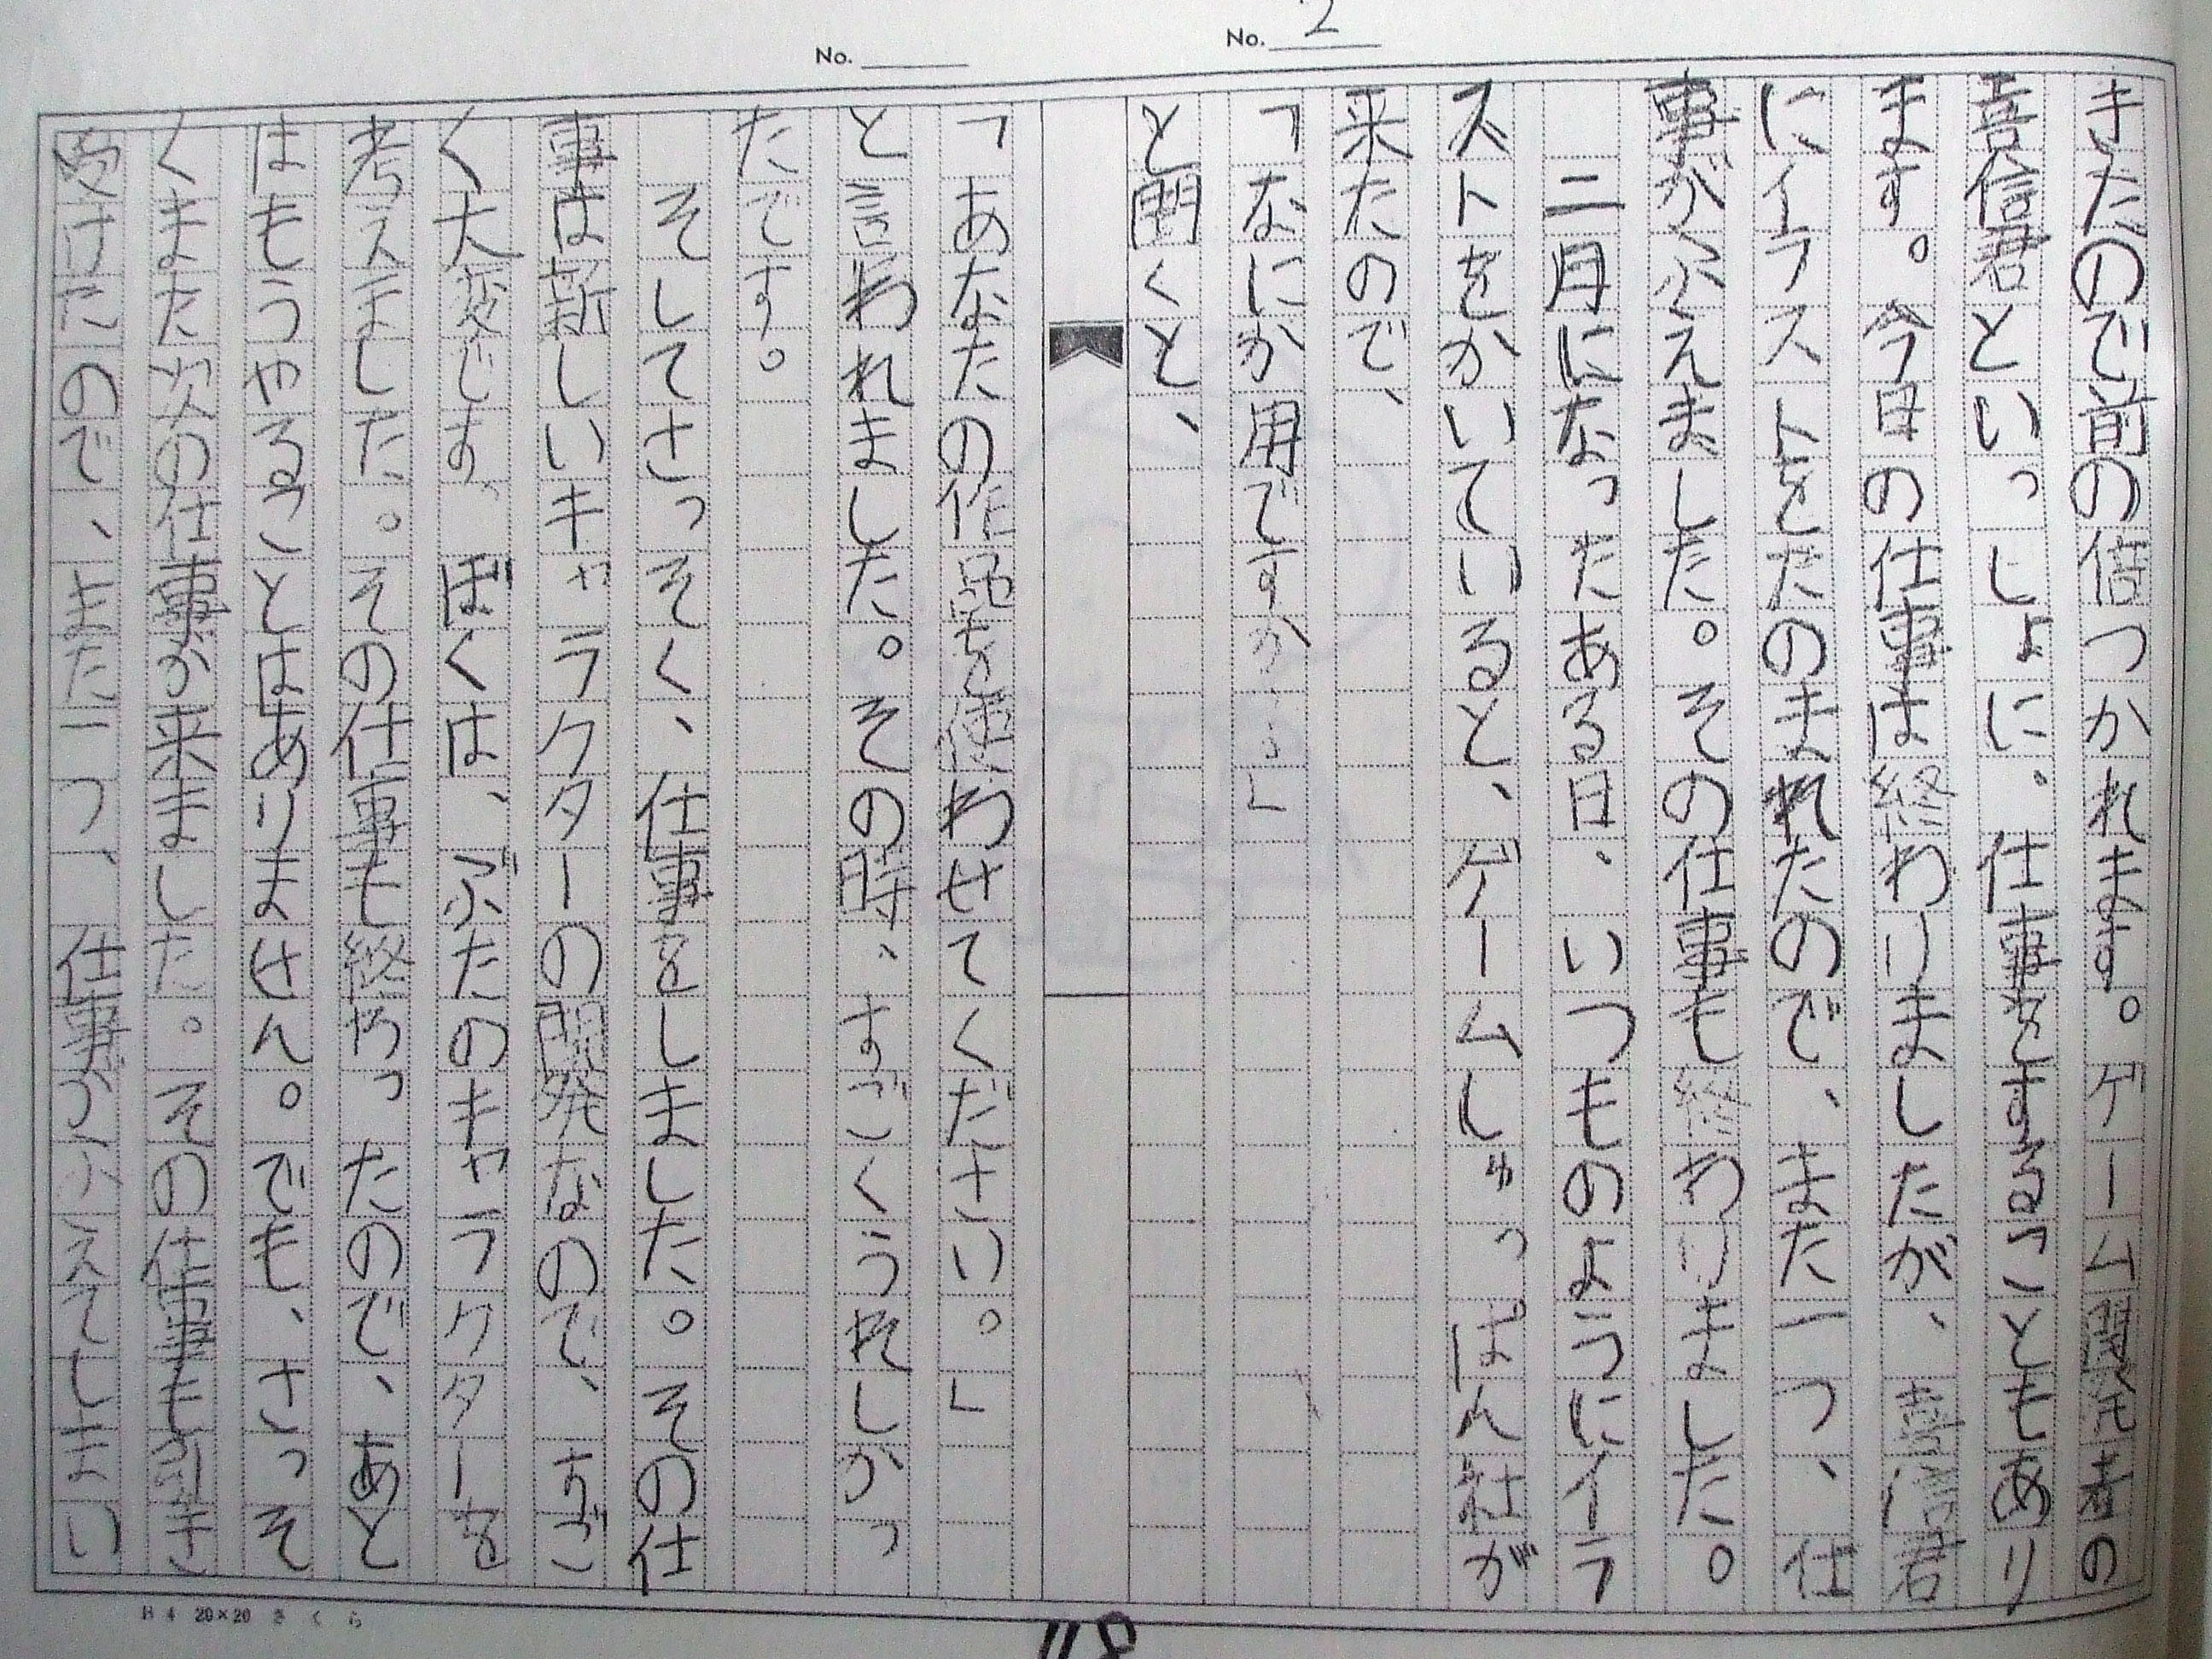 No. 2
きたので前の倍つかれます。ゲーム開発者の
喜信君といっしょに。仕事をすることもあり
ます。今日の仕事は終わりましたが、喜信君
にイラストをたのまれたので、また一つ、仕
事がふえました。その仕事も終わりました。
二月になったある日、いつものようにイラ
ストをかいていると、ゲームしゅっぱん社が
来たので、
「なにか用ですか…」
と聞くと、
No.
「あなたの作品を使わせてください。」
と言われました。その時、すごくうれしかっ
たです。
そしてさっそく、仕事をしました。その仕
事は新しいキャラクターの開発なので、すご
く大変です。ぼくは、ぶたのキャラクターを
考えました。その仕事も終わったので、あと
はもうやることはありません。でも、さっそ
くまた次の仕事が来ました。その仕事も引き
受けたので、また一つ、仕事がふえてしまい
H4 20×20 さくら